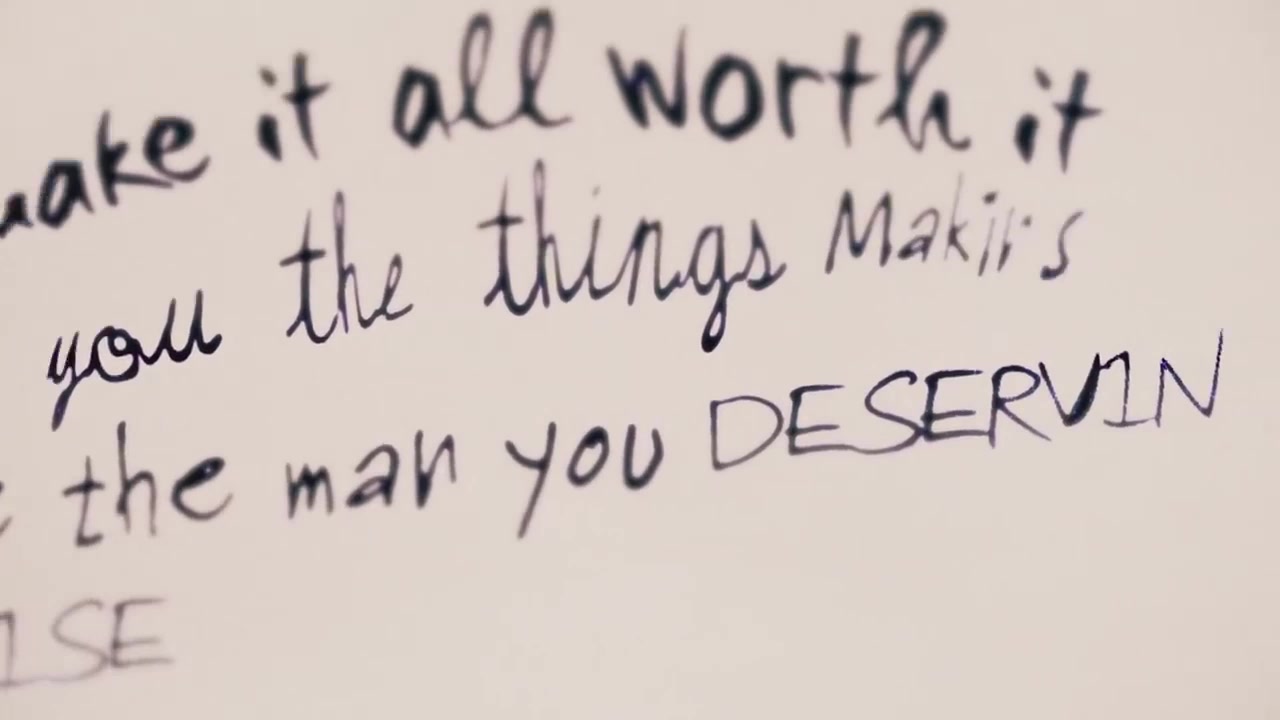 make it all worth it
you the things
the man you DESERVIN